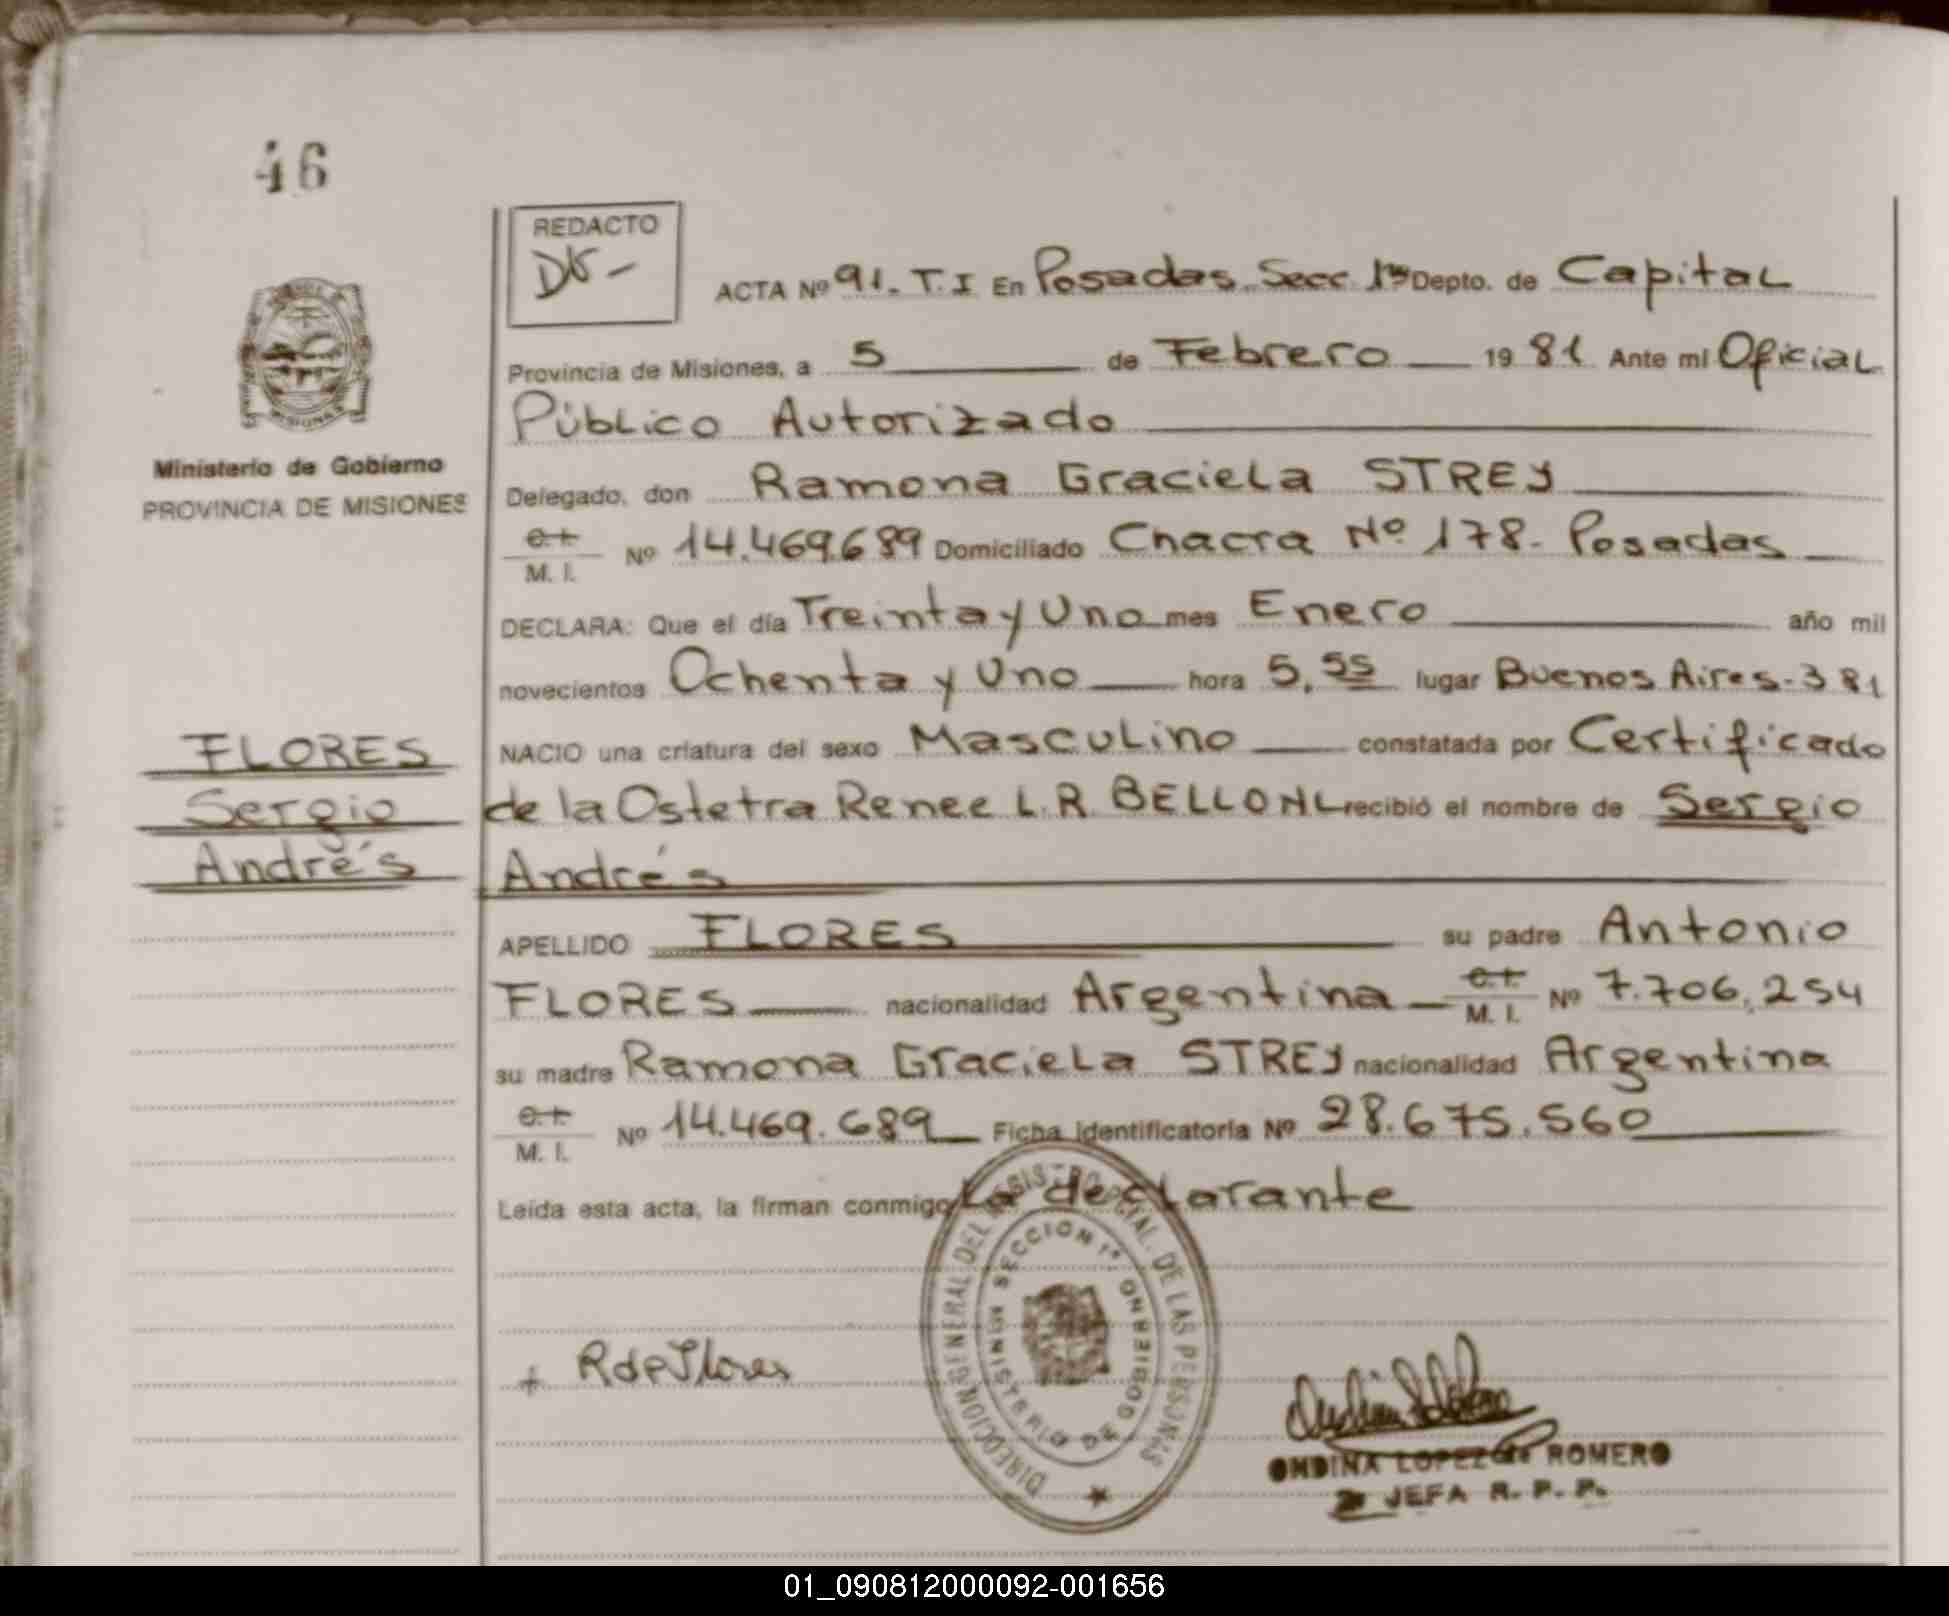 46
REDACTO
ACTA Nº 91. T. I En Posadas. Secc. 1ra Depto. de Capital
Provincia de Misiones, a 5 de Febrero 1981 Ante mi Oficial
Público Autorizado
Ministerio de Gobierno
PROVINCIA DE MISIONES
Delegado, don Ramona Graciela STREY
C.I.
M. I. Nº 14.469.689 Domiciliado Chacra Nº 178- Posadas
DECLARA: Que el día Treinta y Uno mes Enero año mil
novecientos Ochenta y Uno hora 5,55 lugar Buenos Aires-381
FLORES
Sergio
Andrés
NACIO una criatura del sexo Masculino constatada por Certificado
de la Ostetra Renee L. R. BELLONI recibió el nombre de Sergio
Andrés
APELLIDO FLORES su padre Antonio
FLORES nacionalidad Argentina C.I. M. I. Nº 7.706.254
su madre Ramona Graciela STREY nacionalidad Argentina
C.I.
M. I. Nº 14.469.689 Ficha Identificatoria Nº 28.675.560
Leída esta acta, la firman conmigo La declarante
DIRECCION GENERAL DEL REGISTRO PCIAL. DE LAS PERSONAS
SECCION 1ª
MINISTERIO DE GOBIERNO
R de Flores
ONDINA LOPEZ de ROMERO
JEFA R. P. P.
01_090812000092-001656